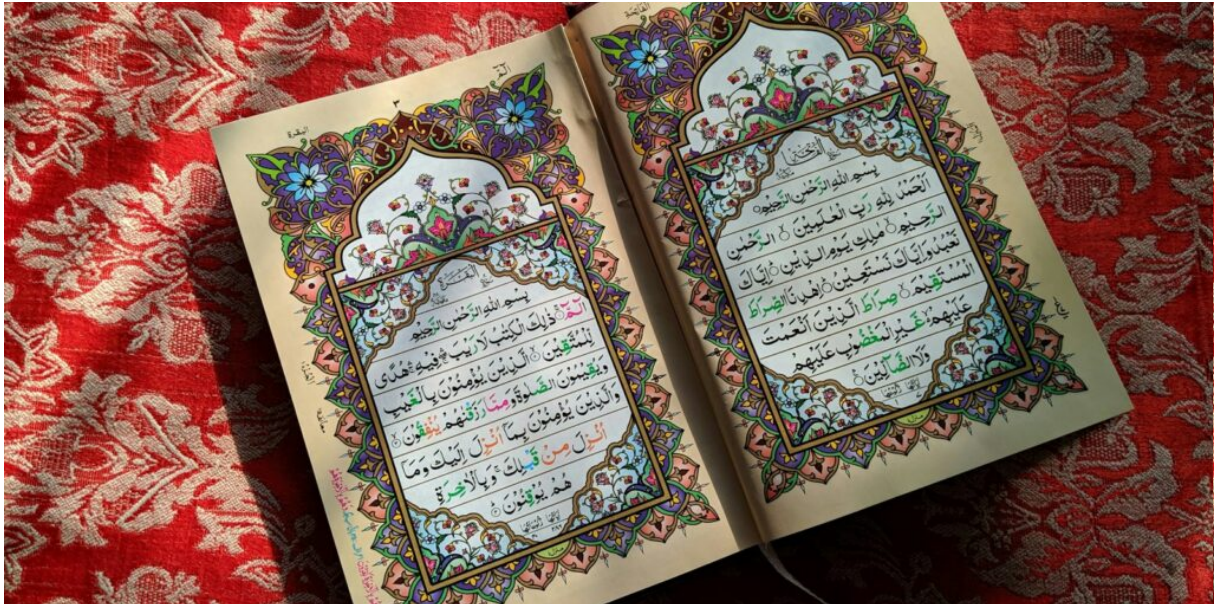 الفاتحة
بِسْمِ اللهِ الرَّحْمٰنِ الرَّحِيْمِ
اَلْحَمْدُ لِلّٰهِ رَبِّ الْعٰلَمِيْنَ ۙ الرَّحْمٰنِ
الرَّحِيْمِ ۙ مٰلِكِ يَوْمِ الدِّيْنِ ۙ اِيَّاكَ
نَعْبُدُ وَاِيَّاكَ نَسْتَعِيْنُ ۙ اِهْدِنَا الصِّرَاطَ
الْمُسْتَقِيْمَ ۙ صِرَاطَ الَّذِيْنَ اَنْعَمْتَ
عَلَيْهِمْ ۙ غَيْرِ الْمَغْضُوْبِ عَلَيْهِمْ
وَلَا الضَّآلِّيْنَ
٣
البقرة
الْبَقَرَة
بِسْمِ اللهِ الرَّحْمٰنِ الرَّحِيْمِ
الٓمّٓ ۚ ذٰلِكَ الْكِتٰبُ لَا رَيْبَ ۛ فِيْهِ ۛ هُدًى
لِّلْمُتَّقِيْنَ ۙ الَّذِيْنَ يُؤْمِنُوْنَ بِالْغَيْبِ
وَيُقِيْمُوْنَ الصَّلٰوةَ وَمِمَّا رَزَقْنٰهُمْ يُنْفِقُوْنَ ۙ
وَالَّذِيْنَ يُؤْمِنُوْنَ بِمَآ اُنْزِلَ اِلَيْكَ وَمَآ
اُنْزِلَ مِنْ قَبْلِكَ ۚ وَبِالْاٰخِرَةِ
هُمْ يُوْقِنُوْنَ